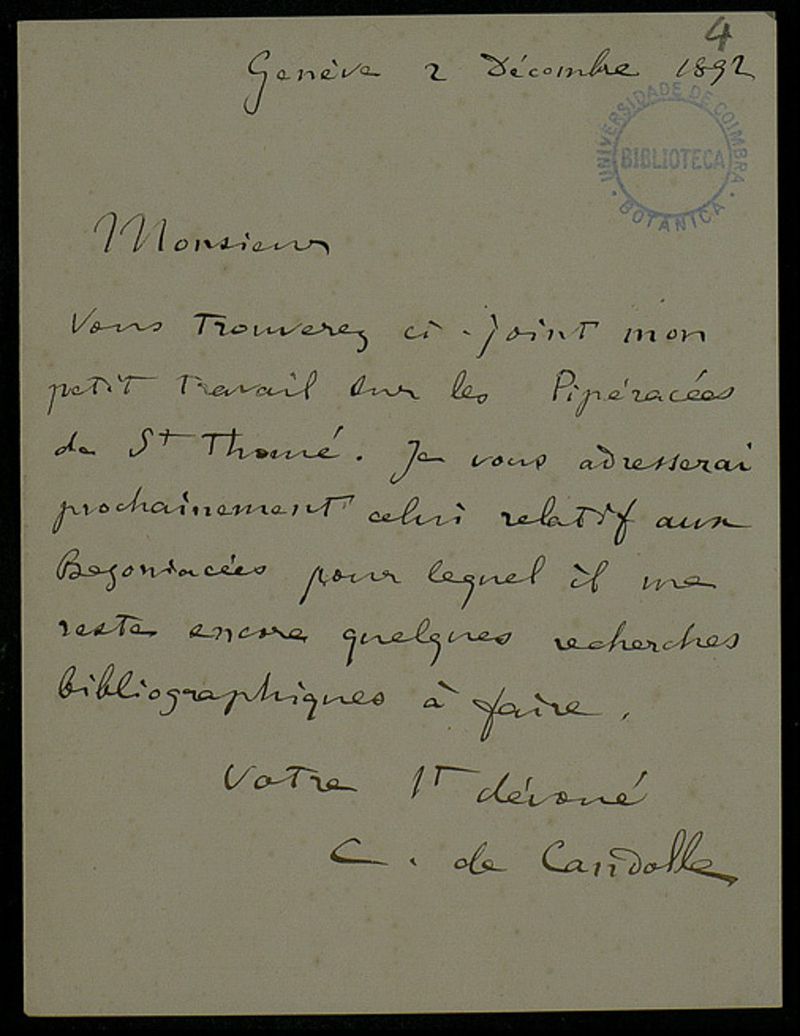 4
Genève 2 Décembre 1892
UNIVERSIDADE DE COIMBRA
BIBLIOTECA
BOTANICA
Monsieur
Vous trouverez ci-joint mon
petit travail sur les Pipéracées
de St Thomé. Je vous adresserai
prochainement celui relatif aux
Begoniacées pour lequel il me
reste encore quelques recherches
bibliographiques à faire.
Votre dévoué
C. de Candolle